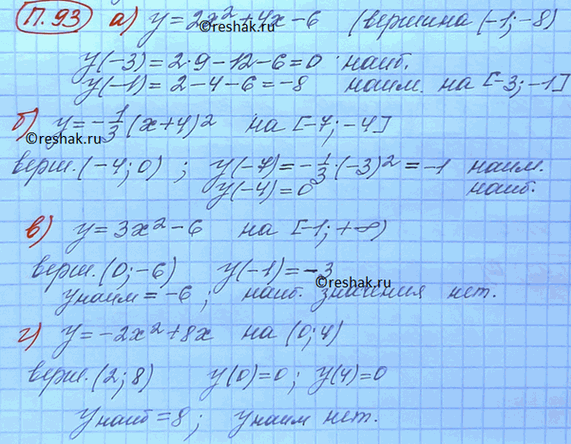 П.93 а) y = 2x² + 4x - 6 (вершина (-1; -8)
©reshak.ru
y(-3) = 2·9 - 12 - 6 = 0 наиб.
y(-1) = 2 - 4 - 6 = -8 наим. на [-3; -1]
б) y = -1/3 (x+4)² на [-7; -4]
©reshak.ru
верш. (-4; 0) ; y(-7) = -1/3 · (-3)² = -1 наим.
y(-4) = 0 наиб.
в) y = 3x² - 6 на [-1; +∞)
верш. (0; -6) y(-1) = -3
©reshak.ru
yнаим = -6 ; наиб. значения нет.
г) y = -2x² + 8x на (0; 4)
верш. (2; 8) y(0) = 0 ; y(4) = 0
yнаиб = 8 ; yнаим нет.